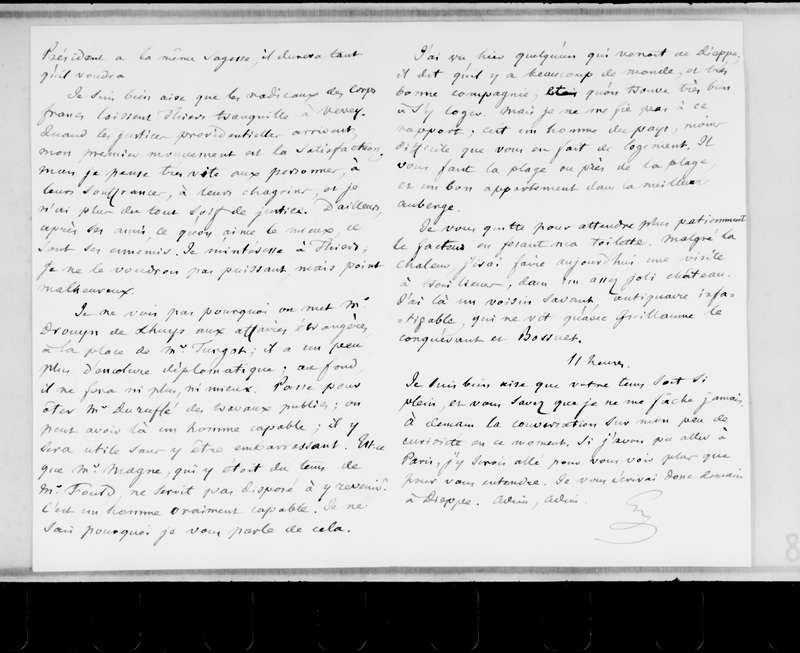 Président a la même sagesse, il durera tant
qu'il voudra
Je suis bien aise que les radicaux des corps
francs laissent Thiers tranquille à Vevey.
Quand les justices providentielles arrivent,
mon premier mouvement est la satisfaction,
mais je pense très vite aux personnes, à
leurs souffrances, à leurs chagrins, et je
n'ai plus du tout soif de justice. D'ailleurs,
après ses amis ce qu'on aime le mieux, ce
sont ses ennemis. Je m'intéresse à Thiers;
je ne le voudrois pas puissant, mais point
malheureux.
Je ne vois pas pourquoi on met Mr.
Drouyn de Lhuys aux affaires étrangères,
à la place de Mr. Turgot; il a un peu
plus d'encolure diplomatique; au fond,
il ne fera ni plus, ni mieux. Passe pour
ôter Mr. Duruflé des travaux publics; on
peut avoir là un homme capable; il y
sera utile sans y être embarrassant. Est-ce
que Mr. Magne, qui y étoit du tems de
Mr. Fould, ne seroit pas disposé à y revenir?
C'est un homme vraiment capable. Je ne
sais pourquoi je vous parle de cela.
J'ai vu hier quelqu'un qui venoit de Dieppe;
il dit qu'il y a beaucoup de monde, et très
bonne compagnie, qu'on trouve très bien
à s'y loger. Mais je ne me fie pas à ce
rapport; c'est un homme du pays, moins
difficile que vous en fait de logement. Il
vous faut la plage ou près de la plage,
et un bon appartement dans la meilleure
auberge.
Je vous quitte pour attendre plus patiemment
le facteur en fesant ma toilette. Malgré la
chaleur j'irai faire aujourd'hui une visite
à lieues, dans un assez joli château.
J'ai là un voisin savant, antiquaire infa-
-tigable, qui ne vit qu'avec Guillaume le
conquérant et Bossuet.
11 heures.
Je suis bien aise que votre tems soit si
plein, et vous savez que je ne me fâche jamais.
à demain la conversation sur mon peu de
curiosité en ce moment. Si j'avois pu aller à
Paris, j'y serois allé pour vous voir plus que
pour vous entendre. Je vous écrirai donc demain
à Dieppe. Adieu, Adieu.